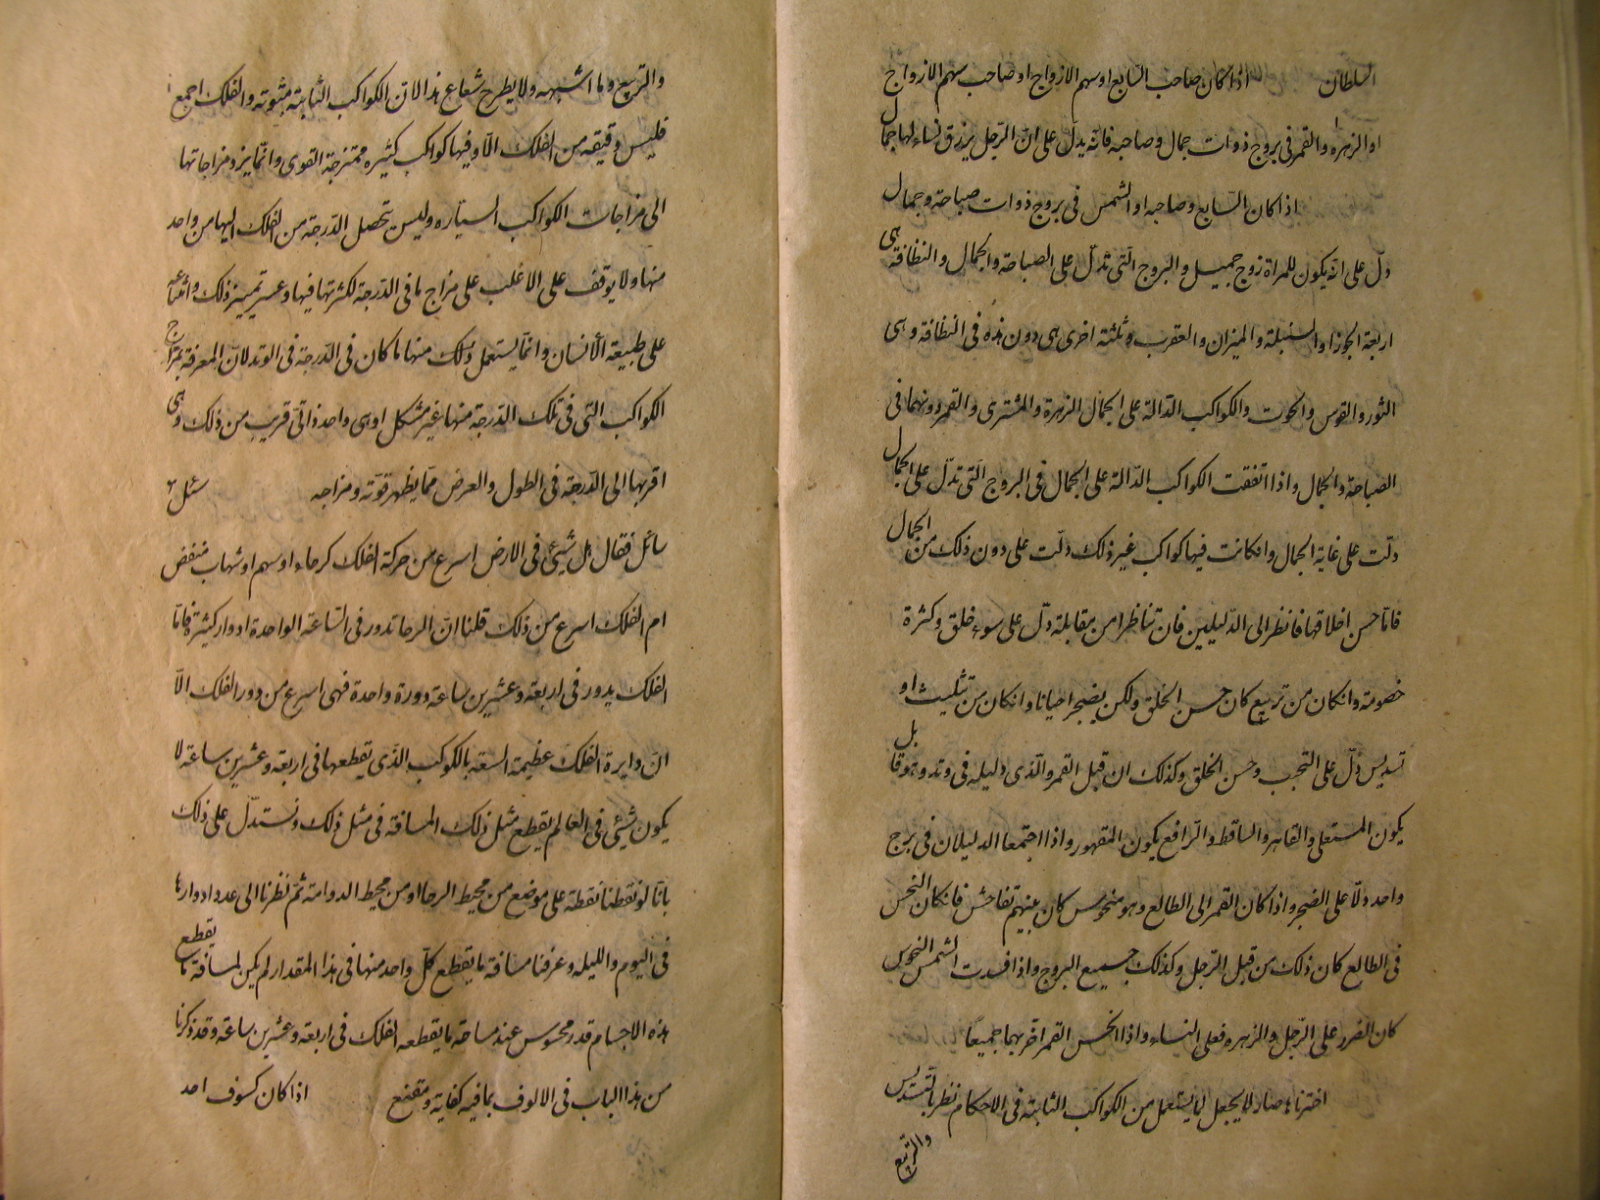 السلطان اذا كان صاحب السابع او سهم الازواج او صاحب سهم الازواج
او الزهره والقمر فى بروج ذوات جمال وصاحبه فانه يدل على ان الرجل يرزق نساء لها جمال
اذا كان السابع وصاحبه او الشمس فى بروج ذوات صباحة وجمال
دل على انه يكون للمراة زوج جميل والبروج التى تدل على الصباحة والجمال والنظافة هى
اربعة الجوزا والسنبلة والميزان والعقرب وثلثة اخرى هى دون هذه فى النظافة وهى
الثور والقوس والحوت والكواكب الدالة على الجمال الزهرة والمشترى والقمر دونهما فى
الصباحة والجمال واذا اتفقت الكواكب الدالة على الجمال فى البروج التى تدل على الجمال
دلت على غاية الجمال وانكانت فيها كواكب غير ذلك دلت على دون ذلك من الجمال
فاما حسن اخلاقها فانظر الى الدليلين فان تناظرا من مقابلة دل على سوء خلق وكثرة
خصومة وانكان من تربيع كان حسن الخلق ولكن يضجر احيانا وانكان من تثليث او
تسديس دل على التحبب وحسن الخلق وكذلك ان قبل القمر والذى دليله فى وتد وهو قابل
يكون المستعلى والقاهر والساقط والرافع يكون المقهور واذا اجتمعا الدليلان فى برج
واحد دلا على الضجر واذا كان القمر الى الطالع وهو منحوس كان بينهم تفاحش فانكان النحس
فى الطالع كان ذلك من قبل الرجل وكذلك جميع البروج واذا افسدت الشمس النحوس
كان الضرر على الرجل والزهره فعلى النساء واذا انحس القمر اضر بهما جميعا
اخترناه صار لا يجعل لما يستعمل من الكواكب الثابتة فى الاحكام نظر بالتسديس
والتربيع
والتربيع وما اشبهه ولا يطرح شعاع هذا لان الكواكب الثابتة مثبوته والفلك اجمع
فليس دقيقه من الفلك الا وفيها كواكب كثيره ممتزجة القوى وانما يزد مزاجاتها
الى مزاجات الكواكب السياره وليس تحصل الدرجة من الفلك اليها من واحد
منها ولا يوقف على الاغلب على مزاج ما فى الدرجة لكثرتها فيها وعسر تمييز ذلك وامتناعه
على طبيعة الانسان وانما يستعمل ذلك منها ما كان فى الدرجة فى الوتد لان المعرفة بمزاج
الكواكب التى فى تلك الدرجة منها غير مشكل اوهى واحدة اتى قريب من ذلك وهى
اقربها الى الدرجة فى الطول والعرض مما يظهر قوته ومزاجه سئل
سائل فقال هل شيئ فى الارض اسرع من حركة الفلك كرحاء او سهم او شهاب منقض
ام الفلك اسرع من ذلك قلنا ان الرحا تدور فى الساعة الواحدة ادوار كثيرة فاما
الفلك يدور فى اربعة وعشرين ساعة دورة واحدة فهى اسرع من دور الفلك الا
ان دايرة الفلك عظيمة السعة بالكوكب الذى يقطعها فى اربعة وعشرين ساعة لا
يكون شيئ فى العالم يقطع مثل ذلك المسافة فى مثل ذلك ونستدل على ذلك
بانا لو نقطنا نقطة على موضع من محيط الرحا او من محيط الدوامة ثم نظرنا الى عدد ادوارها
فى اليوم والليله وعرفنا مسافة ما يقطع كل واحد منها فى هذا المقدار لم يكن لمسافة ما يقطع
هذه الاجسام قدر محسوس عند مساحة ما يقطعه الفلك فى اربعة وعشرين ساعة وقد ذكرنا
من هذا الباب فى الالوف بما فيه كفاية ومقنع اذا كان كسوف احد